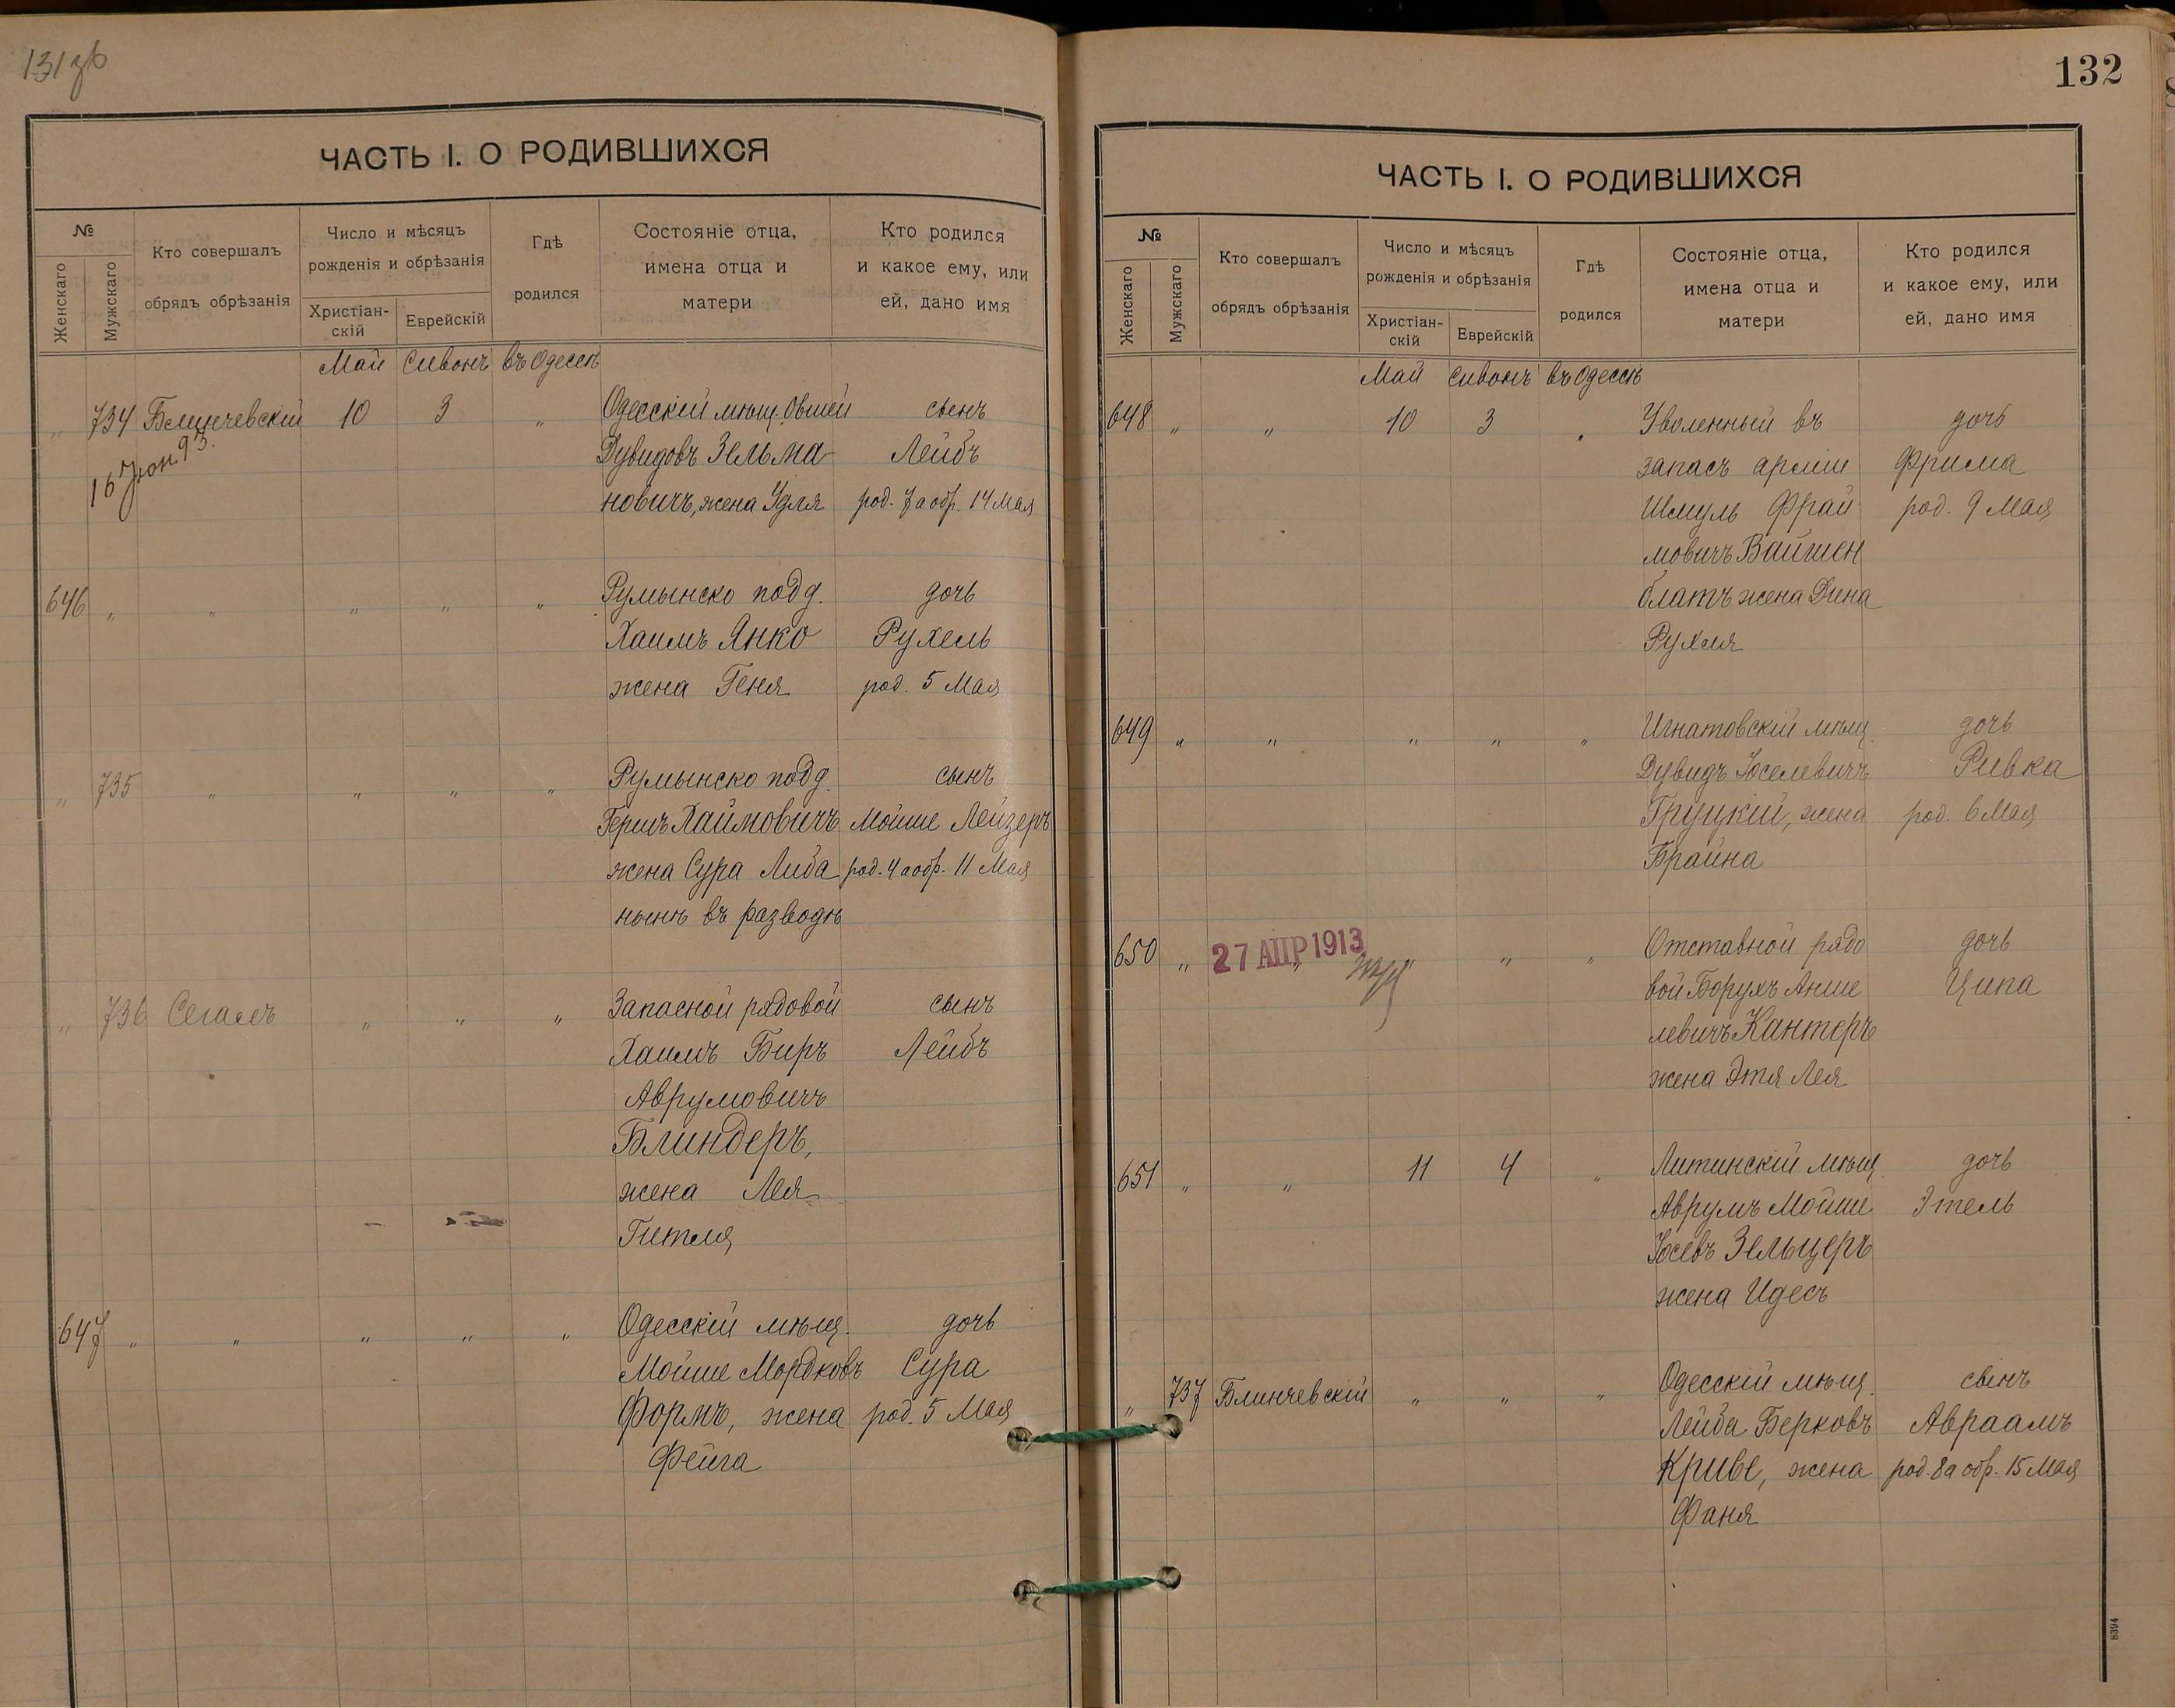 131 об
ЧАСТЬ I. О РОДИВШИХСЯ
№
Женскаго
Мужскаго
Кто совершалъ
обрядъ обрѣзанія
Число и мѣсяцъ
рожденія и обрѣзанія
Христіан-
скій
Еврейскій
Гдѣ
родился
Состояніе отца,
имена отца и
матери
Кто родился
и какое ему, или
ей, дано имя
Май Сивонъ въ Одессѣ
„ 734 Блинчевскій 10 3 „ Одесскій мѣщ. Овшей сынъ
Дувидовъ Зельма- Лейбъ
новичъ, жена Удля род. 7 а обр. 14 Мая
16 Іюн. 93.
646 „ „ „ „ „ Румынско подд. дочь
Хаимъ Янко Рухель
жена Геня род. 5 Мая
„ 735 „ „ „ „ Румынско подд. сынъ
Гершъ Хаймовичъ Мойше Лейзеръ
жена Сура Либа род. 4 а обр. 11 Мая
нынѣ въ разводѣ
„ 736 Сегалъ „ „ „ Запасной рядовой сынъ
Хаимъ Биръ Лейбъ
Аврумовичъ
Блиндеръ,
жена Лея
Гитля
647 „ „ „ „ „ Одесскій мѣщ. дочь
Мойше Мордковъ Сура
Формъ, жена род. 5 Мая
Фейга
132
ЧАСТЬ I. О РОДИВШИХСЯ
№
Женскаго
Мужскаго
Кто совершалъ
обрядъ обрѣзанія
Число и мѣсяцъ
рожденія и обрѣзанія
Христіан-
скій
Еврейскій
Гдѣ
родился
Состояніе отца,
имена отца и
матери
Кто родился
и какое ему, или
ей, дано имя
Май Сивонъ въ Одессѣ
648 „ „ 10 3 „ Уволенный въ дочь
запасъ арміи Фрима
Шмуль Фрай род. 9 Мая
мовичъ Вайшен
блатъ жена Дина
Рухля
649 „ „ „ „ „ Игнатовскій мѣщ. дочь
Дувидъ Іоселевичъ Ривка
Груцкій, жена род. 6 Мая
Брайна
650 „ 27 АПР 1913 „ „ „ Отставной рядо дочь
вой Борухъ Анше Ципа
левичъ Кантеръ
жена Этя Лея
651 „ „ 11 4 „ Литинскій мѣщ. дочь
Аврумъ Мойше Этель
Іосевъ Зельцеръ
жена Идесъ
„ 737 Блинчевскій „ „ „ Одесскій мѣщ. сынъ
Лейба Берковъ Авраамъ
Криве, жена род. 8 а обр. 15 Мая
Фаня
8394